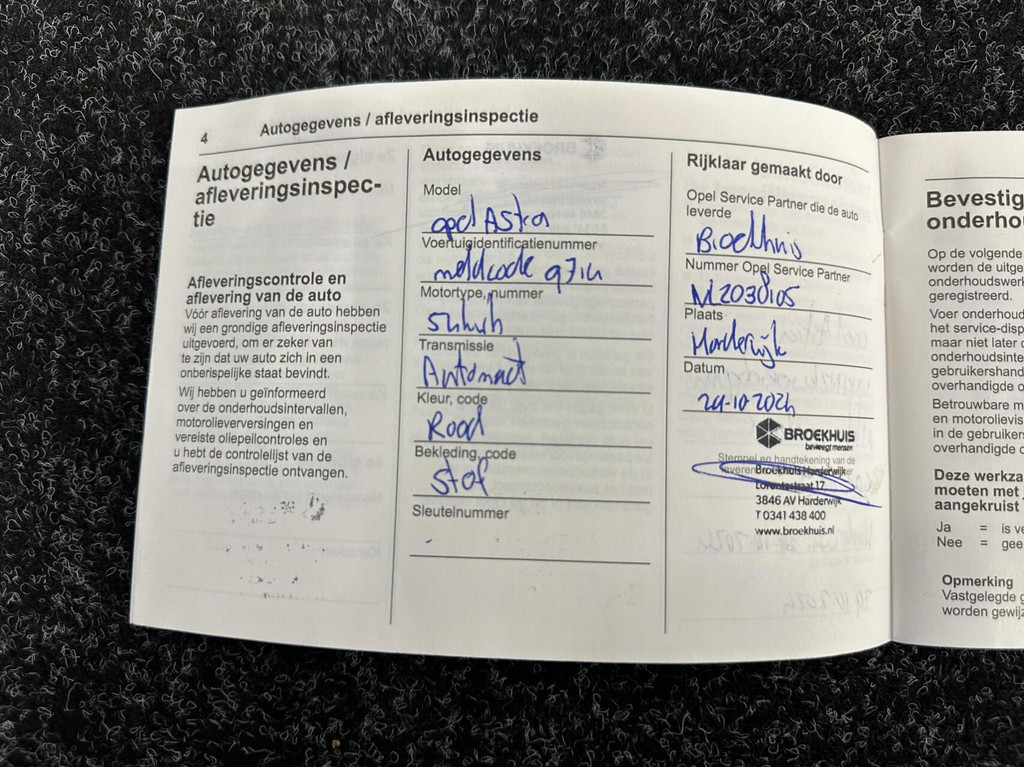 4
Autogegevens / afleveringsinspectie
Autogegevens /
afleveringsinspec-
tie
Afleveringscontrole en
aflevering van de auto
Vóór aflevering van de auto hebben
wij een grondige afleveringsinspectie
uitgevoerd, om er zeker van
te zijn dat uw auto zich in een
onberispelijke staat bevindt.
Wij hebben u geïnformeerd
over de onderhoudsintervallen,
motorolieverversingen en
vereiste oliepeilcontroles en
u hebt de controlelijst van de
afleveringsinspectie ontvangen.
Autogegevens
Model
opel Astra
Voertuigidentificatienummer
meldcode
Motortype, nummer
Transmissie
Automaat
Kleur, code
Rood
Bekleding, code
Stof
Sleutelnummer
-
Rijklaar gemaakt door
Opel Service Partner die de auto
leverde
Broekhuis
Nummer Opel Service Partner
Plaats
Harderwijk
Datum
29-10-2024
BROEKHUIS
beweegt mensen
Stempel en handtekening van de
Broekhuis Harderwijk
Lorentzstraat 17
3846 AV Harderwijk
T 0341 438 400
www.broekhuis.nl
Bevestig
onderho
Op de volgende
worden de uitge
onderhoudswerk
geregistreerd.
Voer onderhoud
het service-disp
maar niet later
onderhoudsinte
gebruikershand
overhandigde
Betrouwbare m
en motorolievis
in de gebruiker
overhandigde
Deze werkza
moeten met
aangekruist
Ja = is ve
Nee = gee
Opmerking
Vastgelegde g
worden gewijz